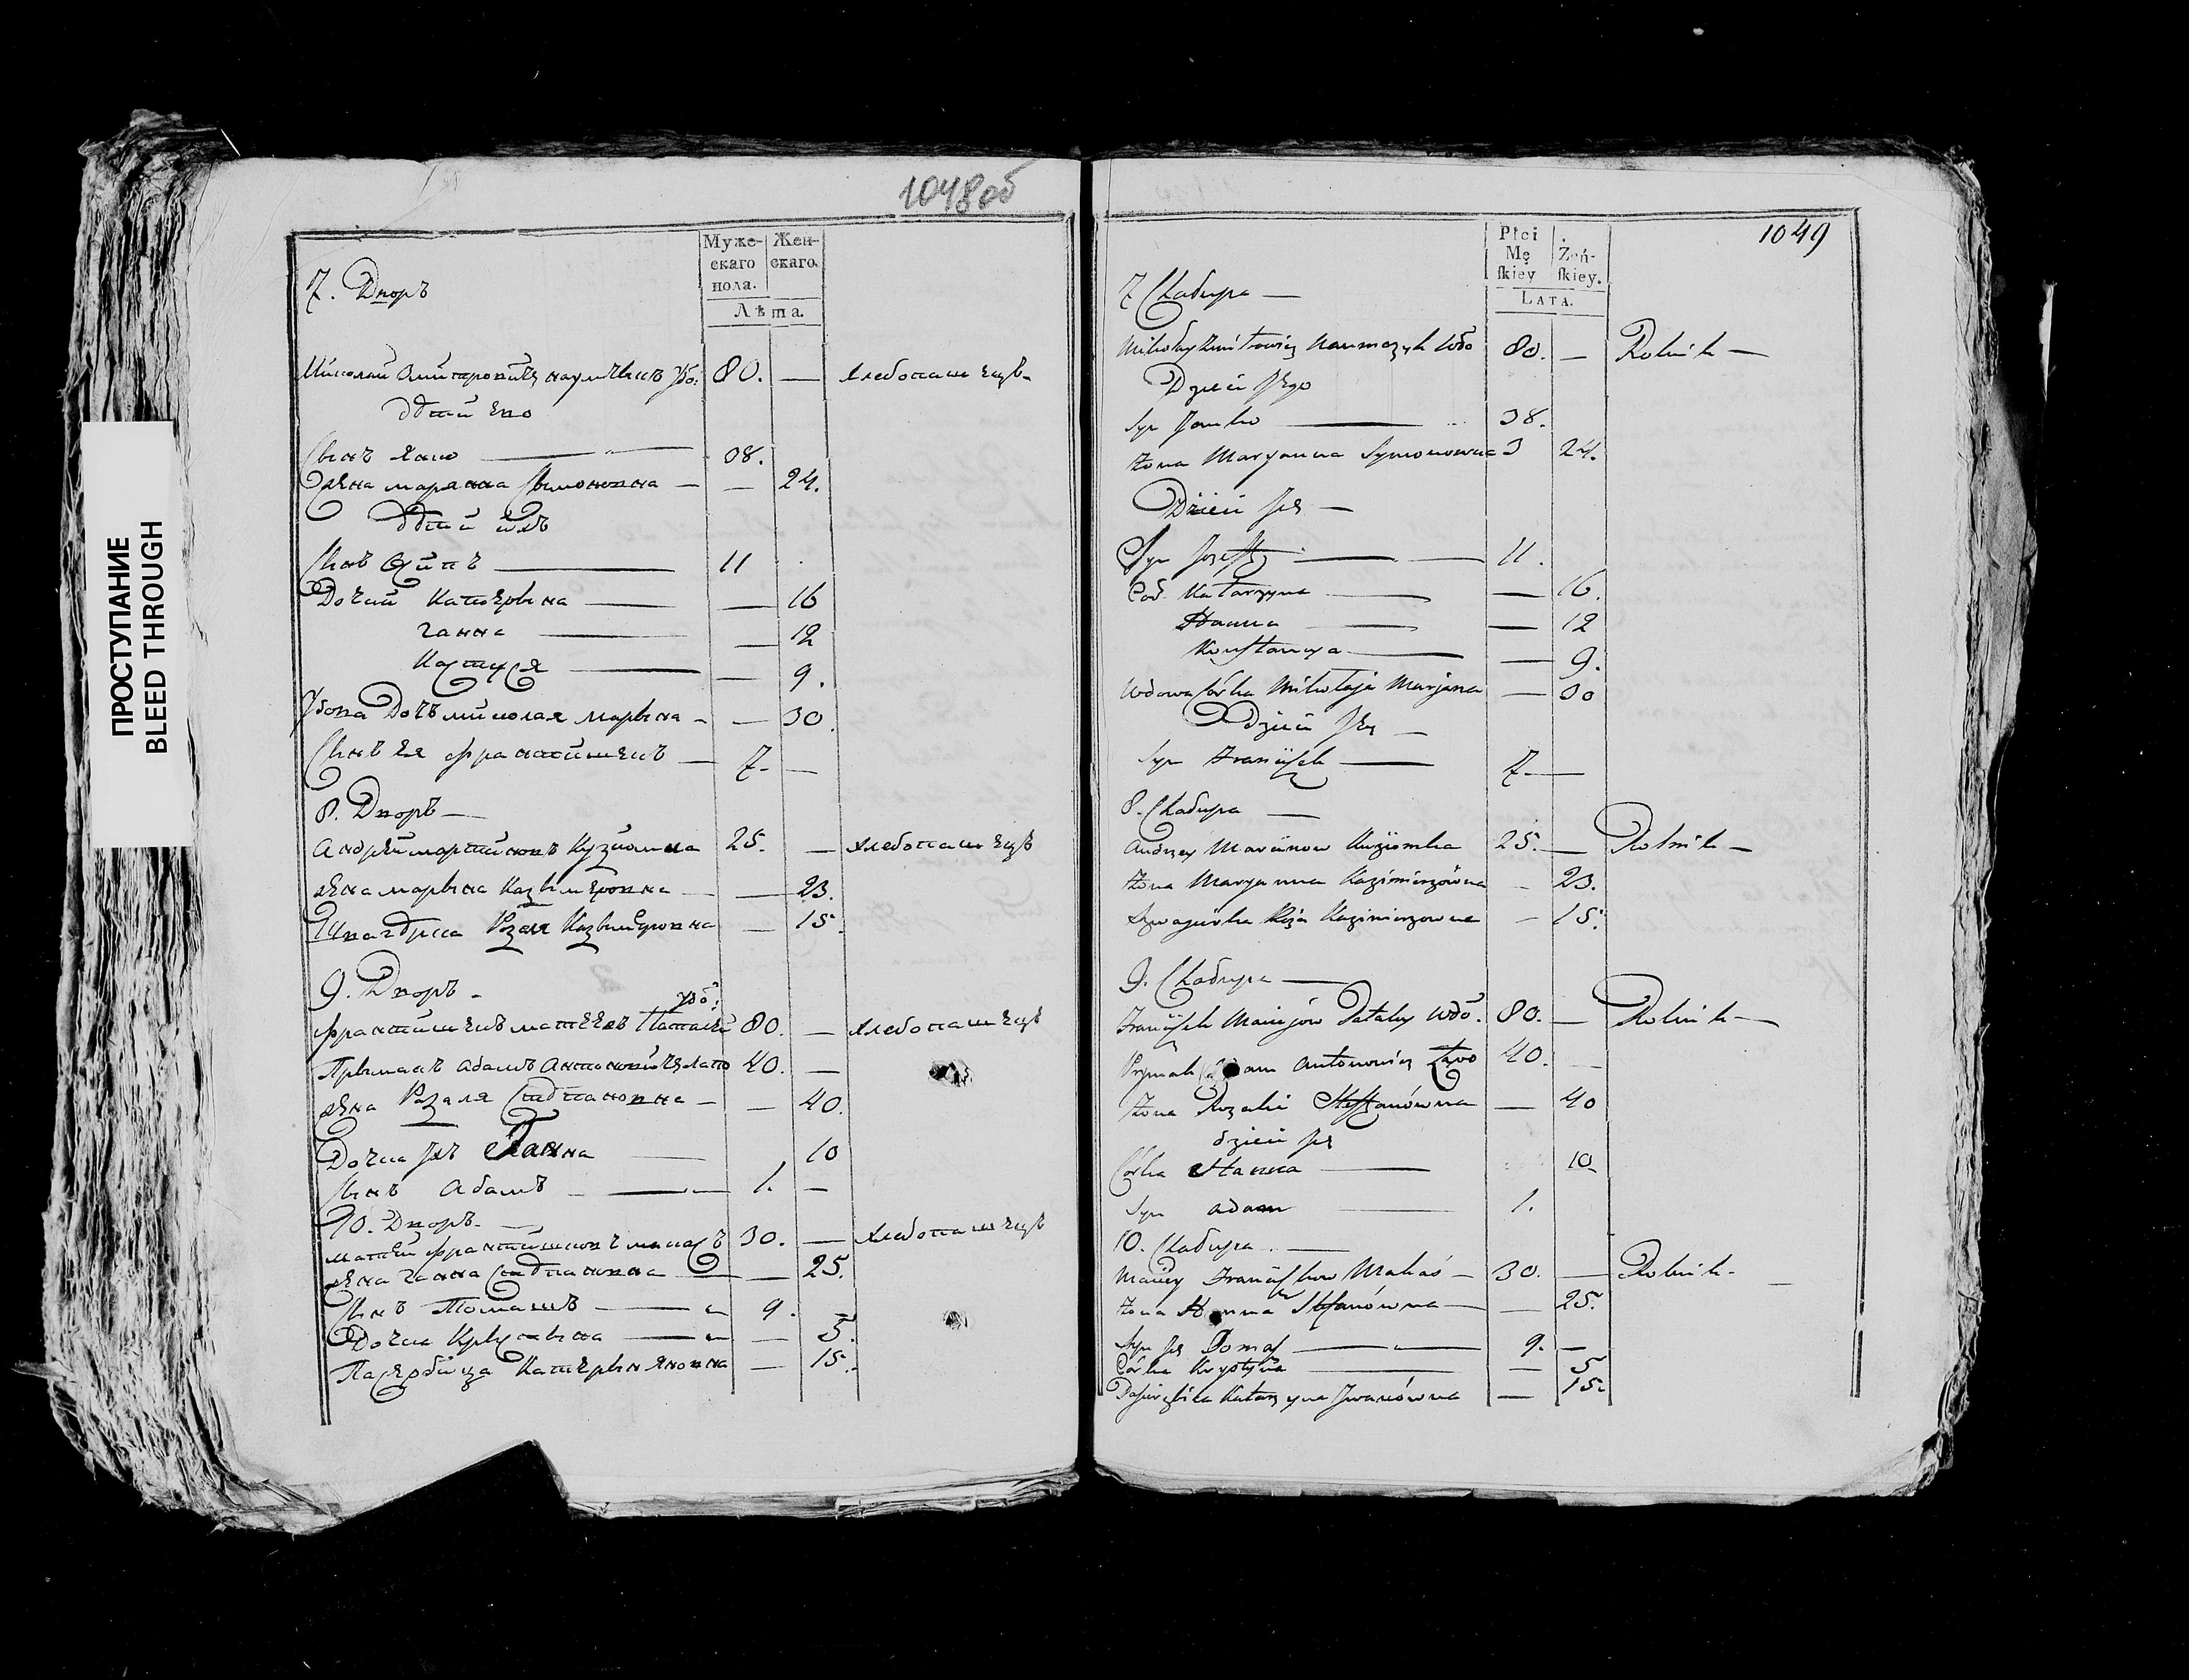 ПРОСТУПАНИЕ
BLEED THROUGH
1048об
Муже-
скаго
пола.
Жен-
скаго.
Лѣта.
7. Дворъ
Миколай Дмитровичъ Наумчикъ 80. — хлебопашецъ
дѣти его
Сынъ Янко — 38.
жена марянна Сымоновна — — 24.
дѣти ихъ
Сынъ Осипъ — 11
Дочки Катерына — — 16
Ганна — — 12
Кастуся — — 9.
Вдова Дочъ миколая марьяна — — 30
Сынъ Ея франтишекъ — 7. —
8. Дворъ —
Андрей мартиновъ Кузиомка 25. — хлебопашецъ
жена марьяна Казимеровна — — 23.
Казимеровна — 15.
9. Дворъ —
франтишекъ матеевъ Паталей 80. — хлебопашецъ
Прымакъ адамъ Антоновичъ 40. —
жена Розаля Стефановна — — 40.
Дочка ихъ Ганна — 10
Сынъ адамъ — 1. —
10. Дворъ —
матей 30. — хлебопашецъ
жена ганна Стефановна — — 25.
Сынъ Томашъ — 9.
Дочка Крысьтына — — 5.
Пасербица Катерына Яновна — 15.
1049
Płci
Mę
skiey
Żeń-
skiey.
LATA.
7 Chałupa —
Mikołay Naumczyk Wdo 80. — Rolnik —
Dzieci Jego
Syn Janko — 38.
Żona Maryanna Symonowna 24.
Dzieci Jch —
Syn Jozeff — 11.
Cor. Katarzyna — — 16.
Hanna — — 12
Konstancya — — 9.
Wdowa Córka Mikołaja Marjana — 30
Dzieci Jey —
Syn Franciszek — 7 —
8. Chałupa —
Andrzey Marcinow Kuziomka 25. — Rolnik —
Żona Maryanna Kazimierzówna — 23.
Szwagierka Róża Kazimierzowna — 15.
9. Chałupa —
Franciszek Maciejów Pataley Wdo. 80. — Rolnik —
Prymak Adam Antonowicz 40. —
Żona Rozalia Steffanówna — 40
dzieci Jch
Córka Hanna — 10
Syn adam — 1.
10. Chałupa —
Maciey Franciszkow Makaś — 30. — Rolnik —
Żona Hanna Stefanówna — — 25.
Syn Jch Tomasz — 9. —
Córka Krystyna — — 5
Pasierzbica Katarzyna Jwanówna — 15.